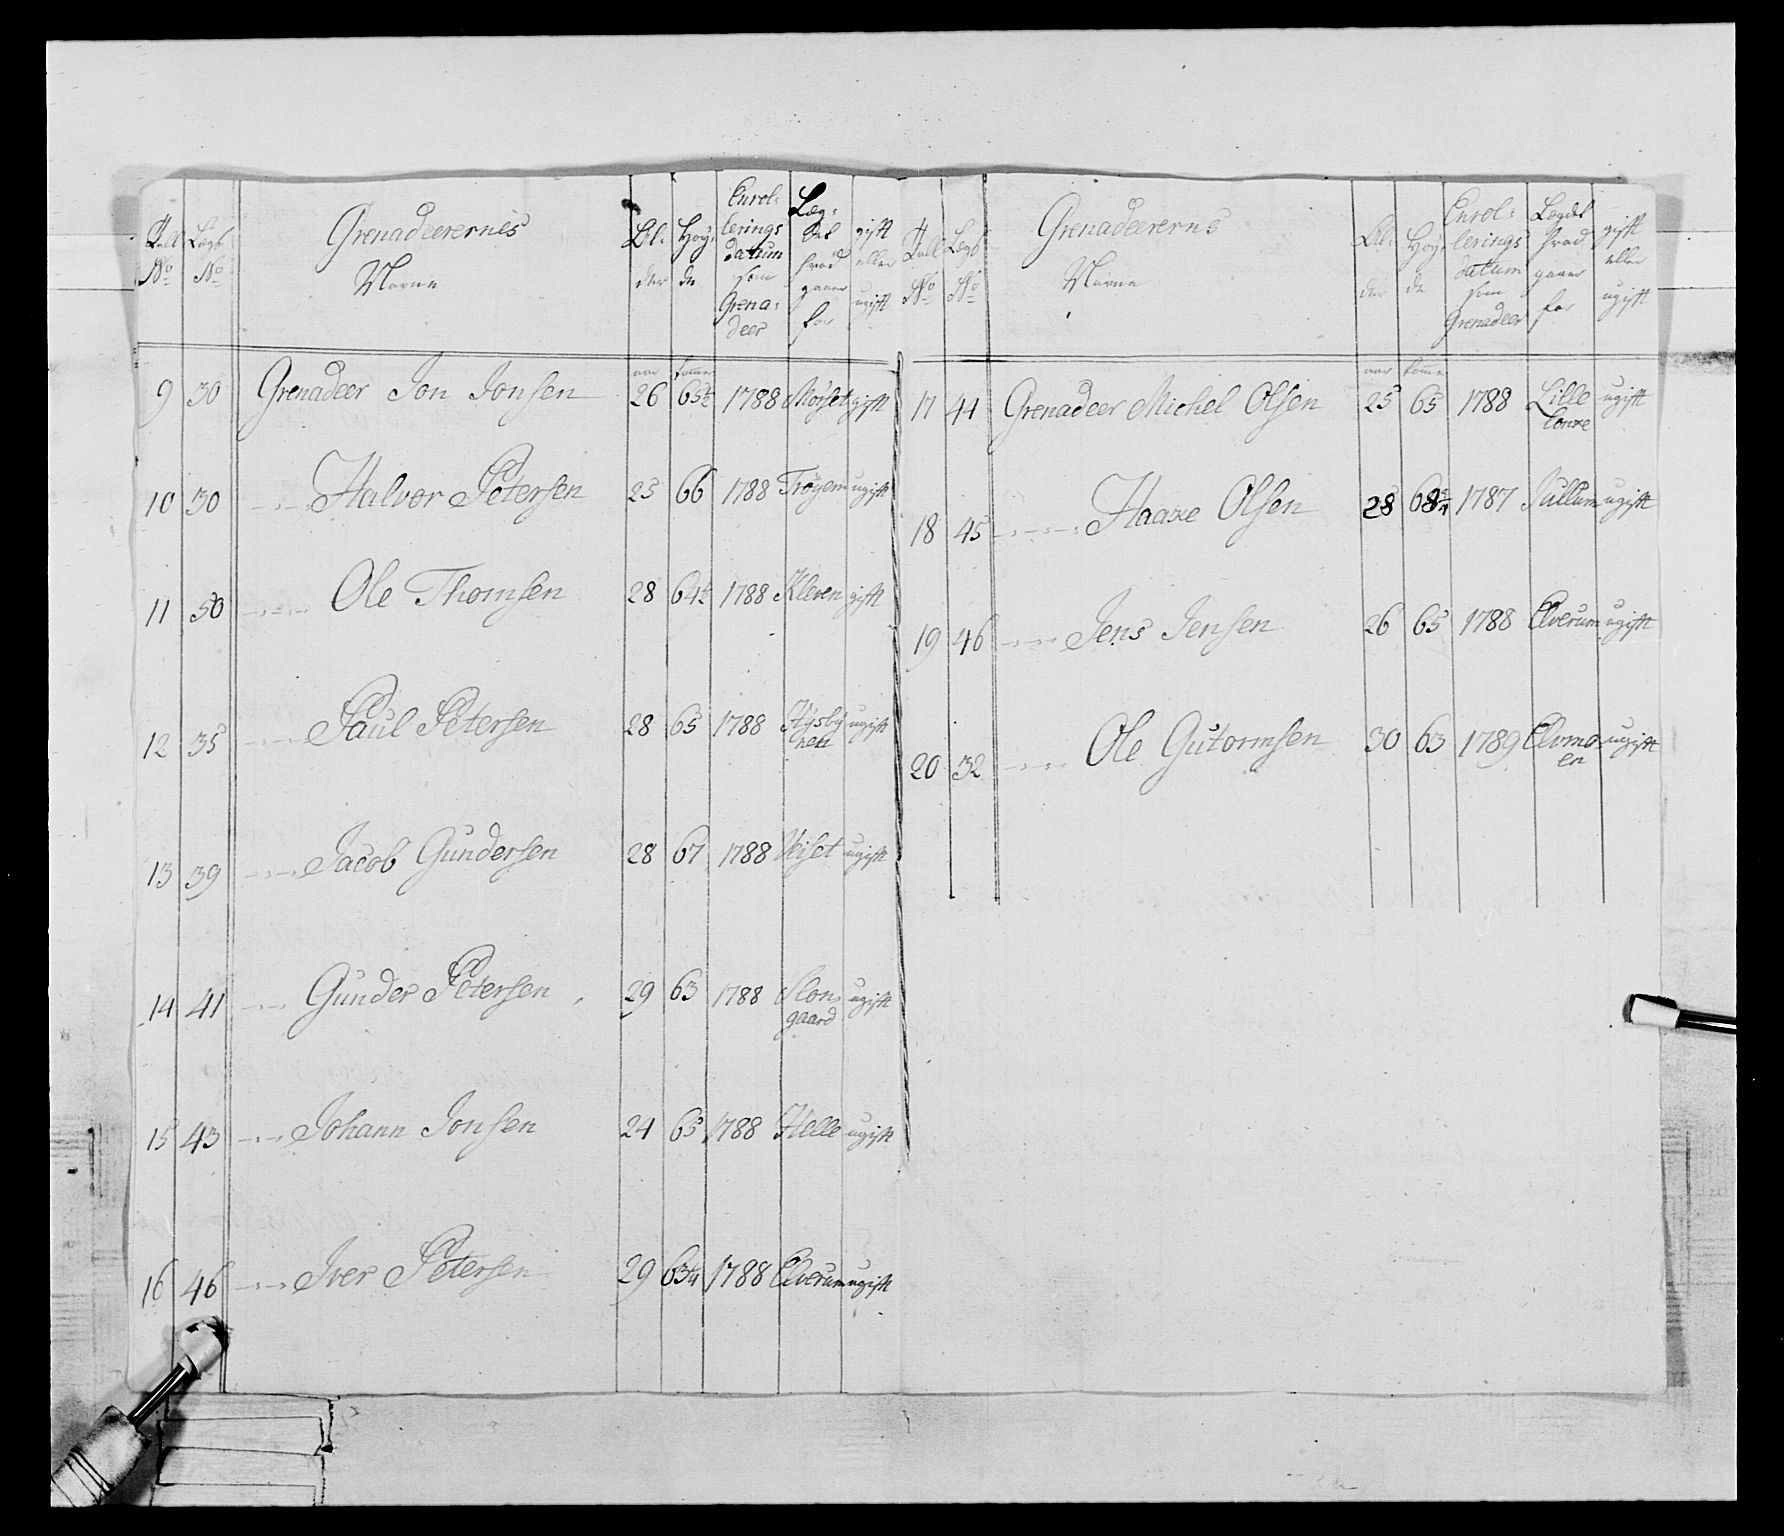 Rull No Lægs No Grenadeerernes Navne Al: der Høy: de Enrol: lerings datum som Grena: deer Læg: det hvad gaaer for gift eller ugift
aar tomme
9 30 Grenadeer Jon Jonsen 26 65½ 1788 Morset gift
10 30 Halvor Petersen 25 66 1788 Trøyem ugift
11 30 Ole Thomsen 28 64½ 1788 Kleven gift
12 35 Paul Petersen 28 65 1788 ugift
13 39 Jacob Gundersen 28 67 1788 ugift
14 41 Gunder Petersen 29 63 1788 Slon,
gaard ugift
15 43 Johann Jonsen 24 65 1788 Helle ugift
16 46 Iver Petersen 29 63¼ 1788 Elverum ugift
Rull No Lægs No Grenadeererns Navne Al: der Høy: de Enrol: lerings datum som Grenadeer Lægdet hvad gaaer for gift eller ugift
aar tomme
17 44 Grenadeer Michel Olsen 25 65 1788 Lille ugift
18 45 Haare Olsen 28 68¾ 1787 ugift
19 46 Jens Jensen 26 65 1788 Elverum ugift
20 32 Ole Gutormsen 30 63 1789 Elvmo
en ugift